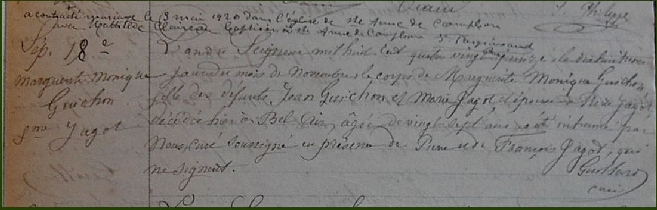 a contracté mariage le 3 mai 1920 dans l'église de Ste Anne de Campbon
avec Mathilde baptisée à Ste Anne de Campbon
Philippe
Sep. 18e
Marguerite Monique
Guichon
fme Jagot
L'an du Seigneur mil huit cent quatre vingt quinze et le dix huitième
jour du mois de Novembre le corps de Marguerite Monique Guichon
fille des défunts Jean Guichon et Marie Jagot épouse de Pierre Jagot
décédée hier à Bel Air âgée de vingt sept ans a été inhumé par
Nous, curé soussigné en présence de Pierre et de François Jagot, qui
ne signent.
curé